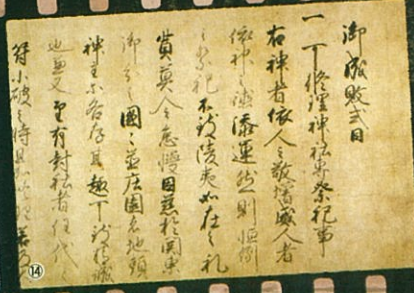 御成敗式目
一 可修理神社専祭祀事
右神者依人之敬増威人者
依神之徳添運然則恒例
之祭祀不致陵夷如在之礼
奠莫令怠慢因茲於関東
御分国々並庄園者地頭
神主等各存其趣可致精誠
也兼又至有封社者任代々
符小破之時且加修理若及大
⑭